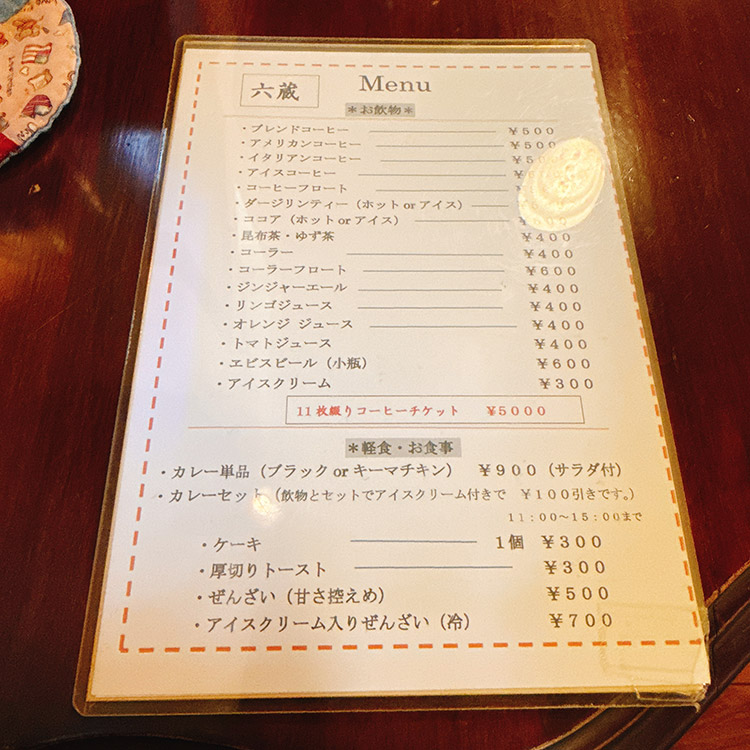 六蔵
Menu
＊お飲物＊
・ブレンドコーヒー ¥500
・アメリカンコーヒー ¥500
・イタリアンコーヒー
・アイスコーヒー
・コーヒーフロート
・ダージリンティー（ホット or アイス）
・ココア（ホット or アイス）
・昆布茶・ゆず茶 ¥400
・コーラー ¥400
・コーラーフロート ¥600
・ジンジャーエール ¥400
・リンゴジュース ¥400
・オレンジ ジュース ¥400
・トマトジュース ¥400
・ヱビスビール（小瓶） ¥600
・アイスクリーム ¥300
11枚綴りコーヒーチケット ¥5000
＊軽食・お食事
・カレー単品（ブラック or キーマチキン） ¥900（サラダ付）
・カレーセット（飲物とセットでアイスクリーム付きで ¥100引きです。）
11：00～15：00まで
・ケーキ 1個 ¥300
・厚切りトースト ¥300
・ぜんざい（甘さ控えめ） ¥500
・アイスクリーム入りぜんざい（冷） ¥700